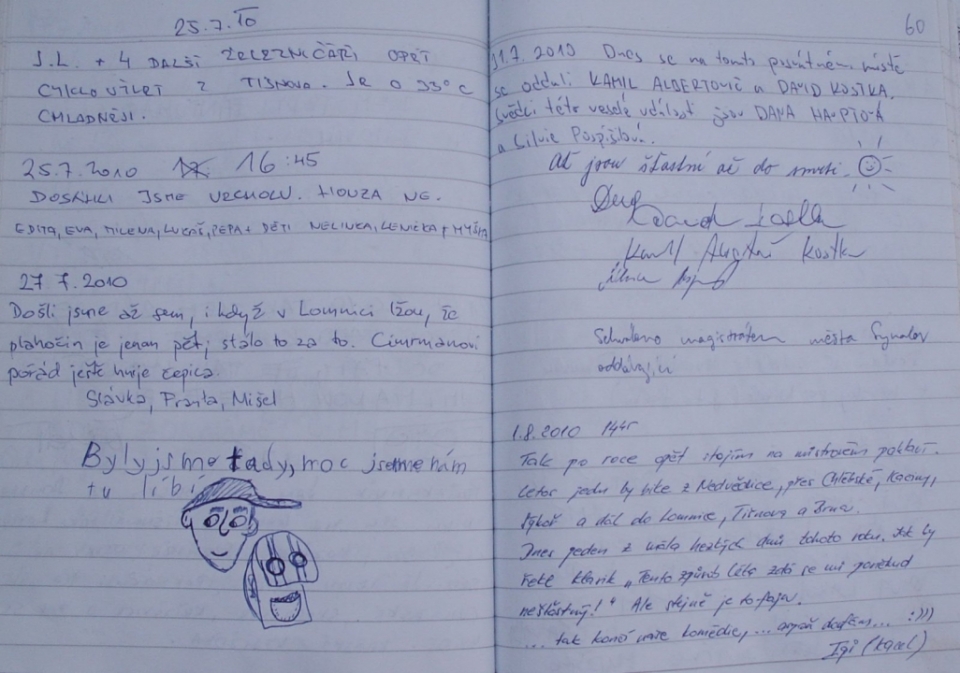 25.7.10
J.L. + 4 DALŠÍ ŽELEZNIČÁŘI OPĚT
CYKLOVÝLET Z TIŠNOVA. JE O 33°C
CHLADNĚJI.
25.7.2010 16:45
DOSÁHLI JSME VRCHOLU. HOUZA NE.
EDITA, EVA, MILENA, LUKÁŠ, PEPA + DĚTI NELINKA, LENIČKA,
27.7.2010
Došli jsme až sem, i když v Lomnici lžou, že
plahočin je jenom pět; stálo to za to. Cimrmanovi
pořád ještě hnije čepica.
Slávka, Franta, Mišel
Byly jsme tady, moc se nám
tu líbí
60
31.7.2010 Dnes se na tomto posvátném místě
se oddali KAMIL ALBERTOVIČ a DAVID KOSTKA.
Svědci této veselé události jsou DANA HAUPTOVÁ
a Silvie Pospíšilová.
Ať jsou šťastní až do smrti.
David Kostka
Kamil Kostka
Schváleno magistrátem města Synalov
oddávající
1.8.2010 1445
Tak po roce opět stojím na mistrovém
Letos jedu by bike z Nedvědice, přes
Sýkoř a dál do Lomnice, Tišnova a Brna.
Dnes jeden z mála hezkých dnů tohoto roku. Jak by
řekl klasik "Tento způsob léta zdá se mi poněkud
nešťastný!" Ale stejně je to fajn.
... tak končí naše komédie, ... :)))
Igi (Kqcel)